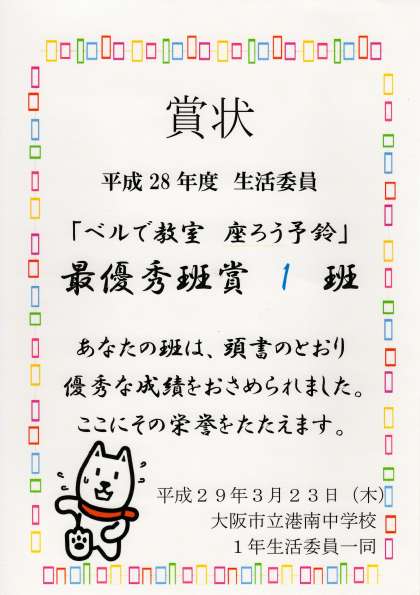 賞状
平成28年度 生活委員
「ベルで教室 座ろう予鈴」
最優秀班賞 1 班
あなたの班は、頭書のとおり
優秀な成績をおさめられました。
ここにその栄誉をたたえます。
平成29年3月23日(木)
大阪市立港南中学校
1年生活委員一同